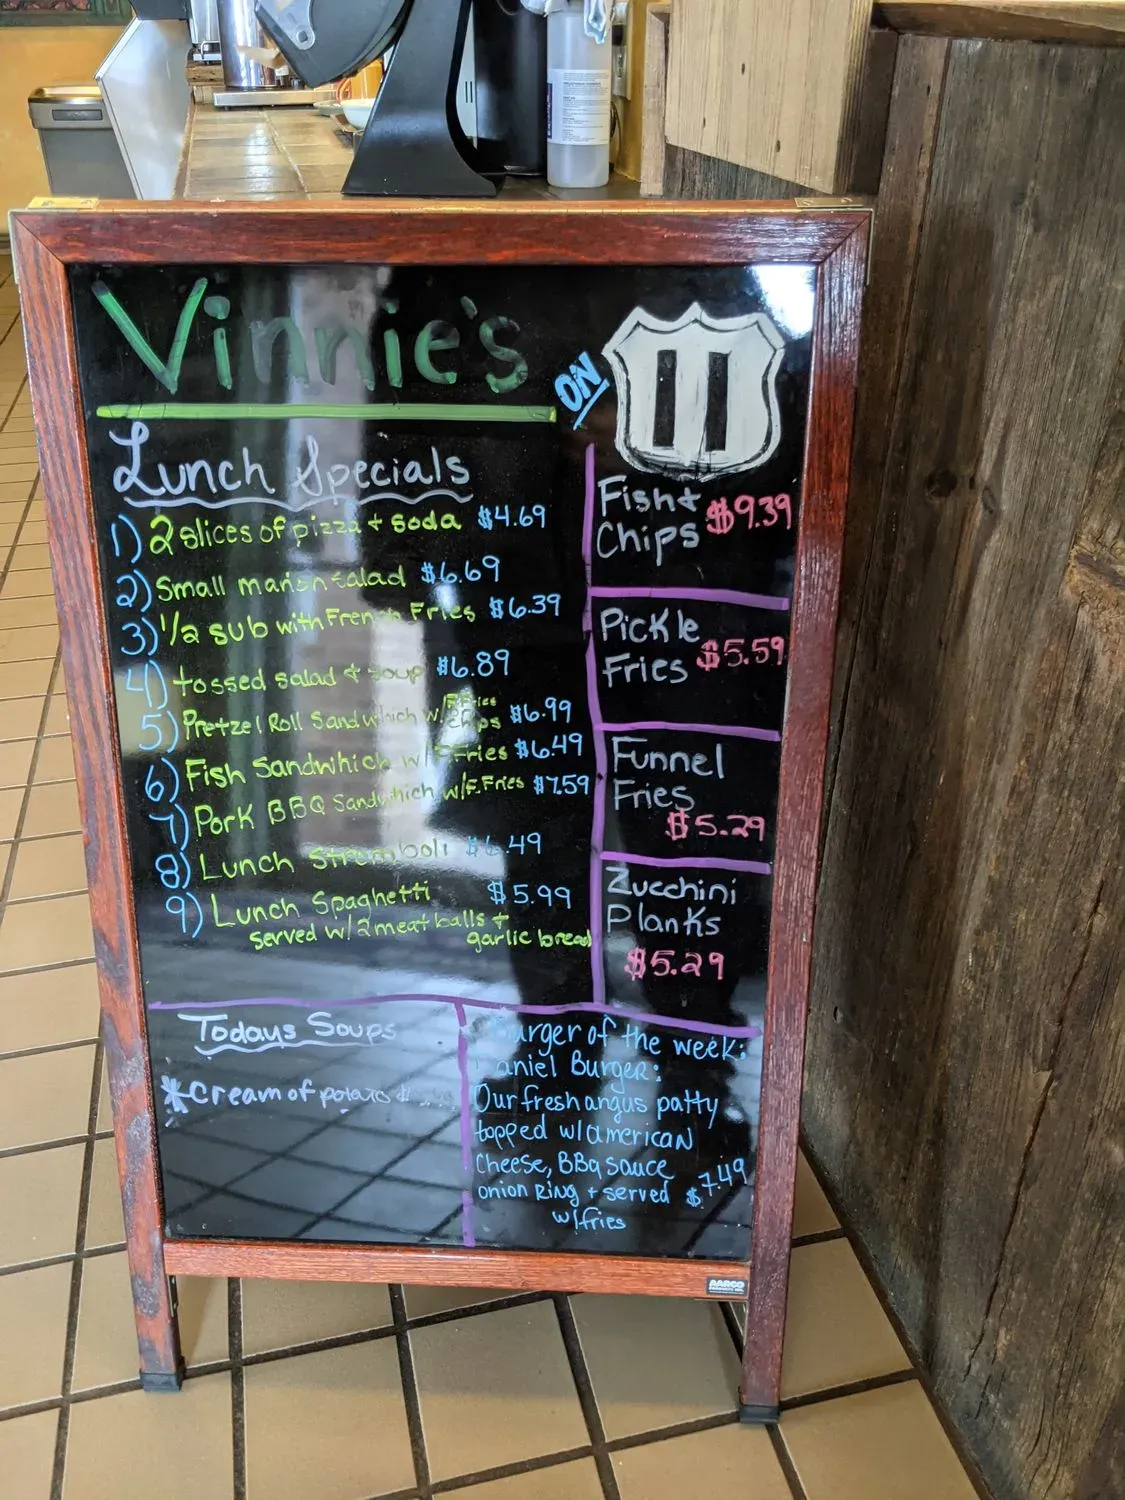 Vinnie's
ON
11
Lunch Specials
1) 2 slices of pizza + soda $4.69
2) Small marion salad $6.69
3) 1/2 sub with French Fries $6.39
4) tossed salad & soup $6.89
5) Pretzel Roll Sandwhich w/ F.Fries
chips $6.99
6) Fish Sandwhich w/ F.Fries $6.49
7) Pork BBQ Sandwhich w/F.Fries $7.59
8) Lunch Stromboli $6.49
9) Lunch Spaghetti $5.99
served w/ 2 meatballs +
garlic bread
Fish +
Chips $9.39
Pickle
Fries $5.59
Funnel
Fries
$5.29
Zucchini
Planks
$5.29
Todays Soups
*Cream of potato
Burger of the week:
Daniel Burger:
Our fresh angus patty
topped w/ american
Cheese, BBq sauce
onion Ring + served $7.49
w/fries
AARCO